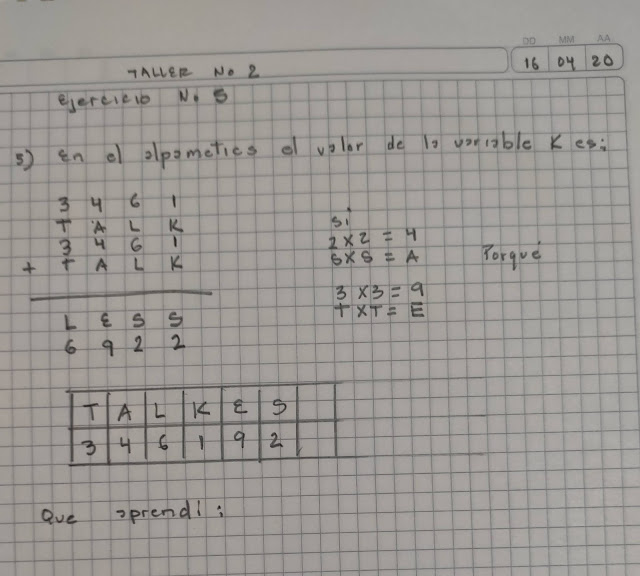 DD MM AA
16 04 20
TALLER No 2
Ejercicio No 5
5) En el alpametics el valor de la variable K es:
3 4 6 1
T A L K
3 4 6 1
+ T A L K
L E S S
6 9 2 2
si
2 x 2 = 4
S x S = A
Porqué
3 x 3 = 9
T x T = E
T A L K E S
3 4 6 1 9 2
Que aprendi: